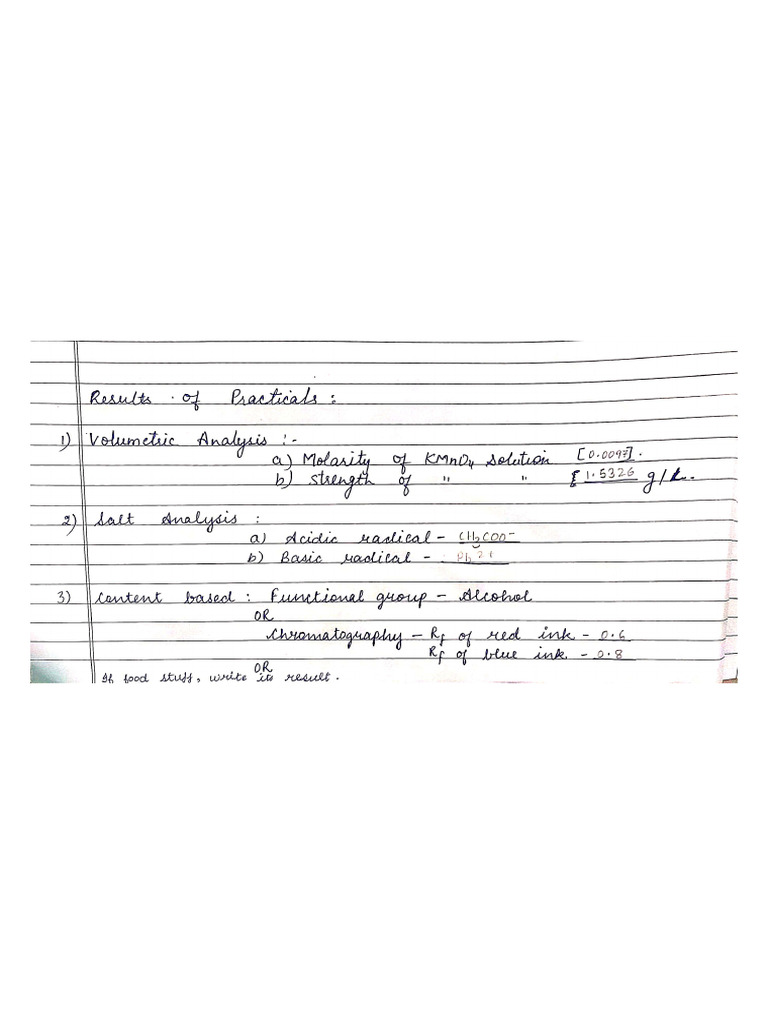 Results of Practicals :
1) Volumetric Analysis :-
a) Molarity of KMnO4 solution [0.0097].
b) strength of " " [1.5326 g/L.
2) Salt Analysis :
a) Acidic radical - CH3COO-
b) Basic radical - Pb2+
3) Content based : Functional group - Alcohol
OR
Chromatography - Rf of red ink - 0.6
Rf of blue ink - 0.8
OR
If food stuff, write its result.